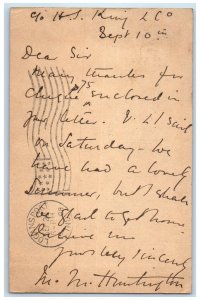 c/o H. S. King & Co
Sept 10th
Dear Sir
Many thanks for
cheque enclosed in
your letter. I sail
on Saturday - We
have had a lovely
Summer, but I shall
be glad to get home
Believe me
yours very sincerely
M. Huntington